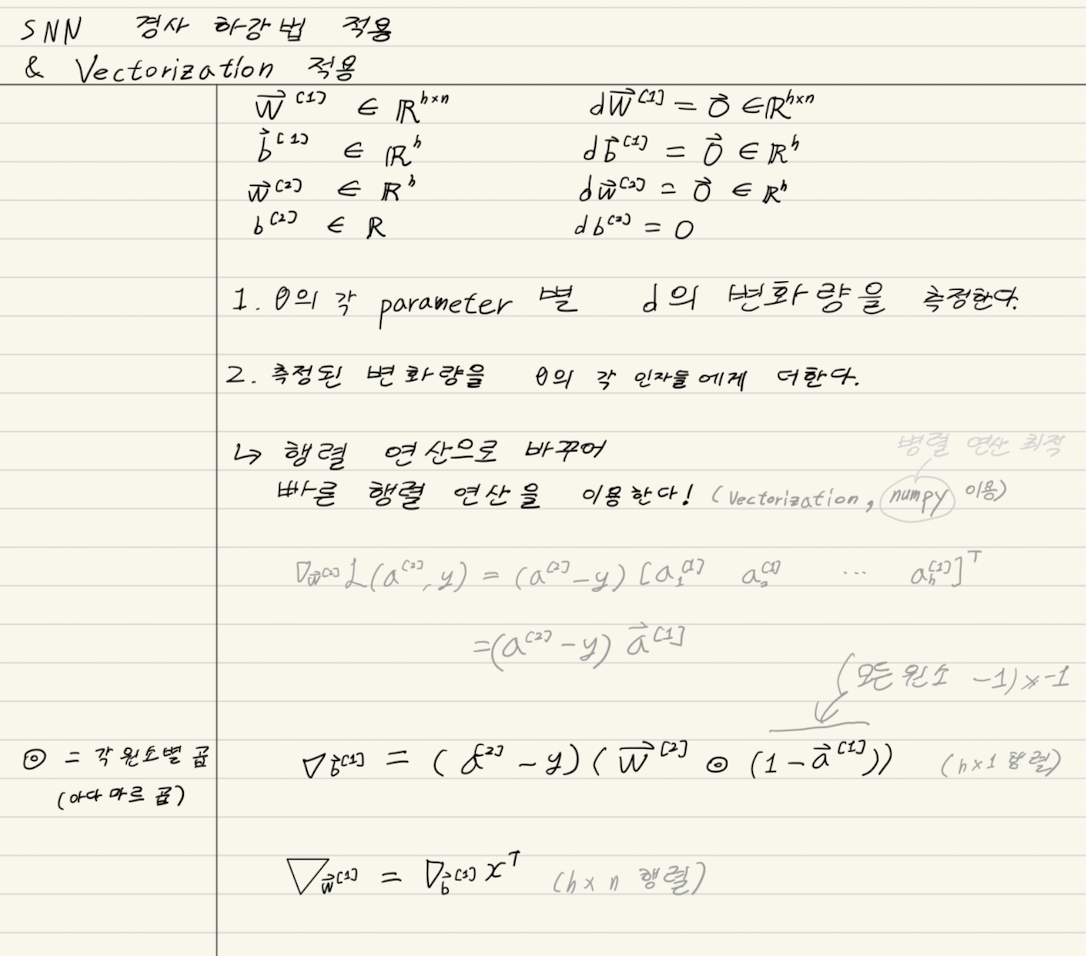 SNN 경사 하강법 적용
& Vectorization 적용
W⃗^[1] ∈ ℝ^(h×n)    dW⃗^[1] = 0⃗ ∈ ℝ^(h×n)
b⃗^[1] ∈ ℝ^h    db⃗^[1] = 0⃗ ∈ ℝ^h
w⃗^[2] ∈ ℝ^h    dw⃗^[2] = 0⃗ ∈ ℝ^h
b^[2] ∈ ℝ    db^[2] = 0
1. θ의 각 parameter 별 d의 변화량을 측정한다.
2. 측정된 변화량을 θ의 각 인자들에게 더한다.
↳ 행렬 연산으로 바꾸어
병렬 연산 최적
빠른 행렬 연산을 이용한다! (Vectorization, numpy 이용)
∇w⃗^[2] L(a^[2], y) = (a^[2] - y) [a₁^[1] a₂^[1] ⋯ a_h^[1]]^T
= (a^[2] - y) a⃗^[1]
(모든 원소 -1) × -1
⊙ = 각 원소별 곱
(아다마르 곱)
∇b⃗^[1] = (a^[2] - y)(W⃗^[2] ⊙ (1 - a⃗^[1])) (h×1 행렬)
∇w⃗^[1] = ∇b⃗^[1] x^T (h×n 행렬)